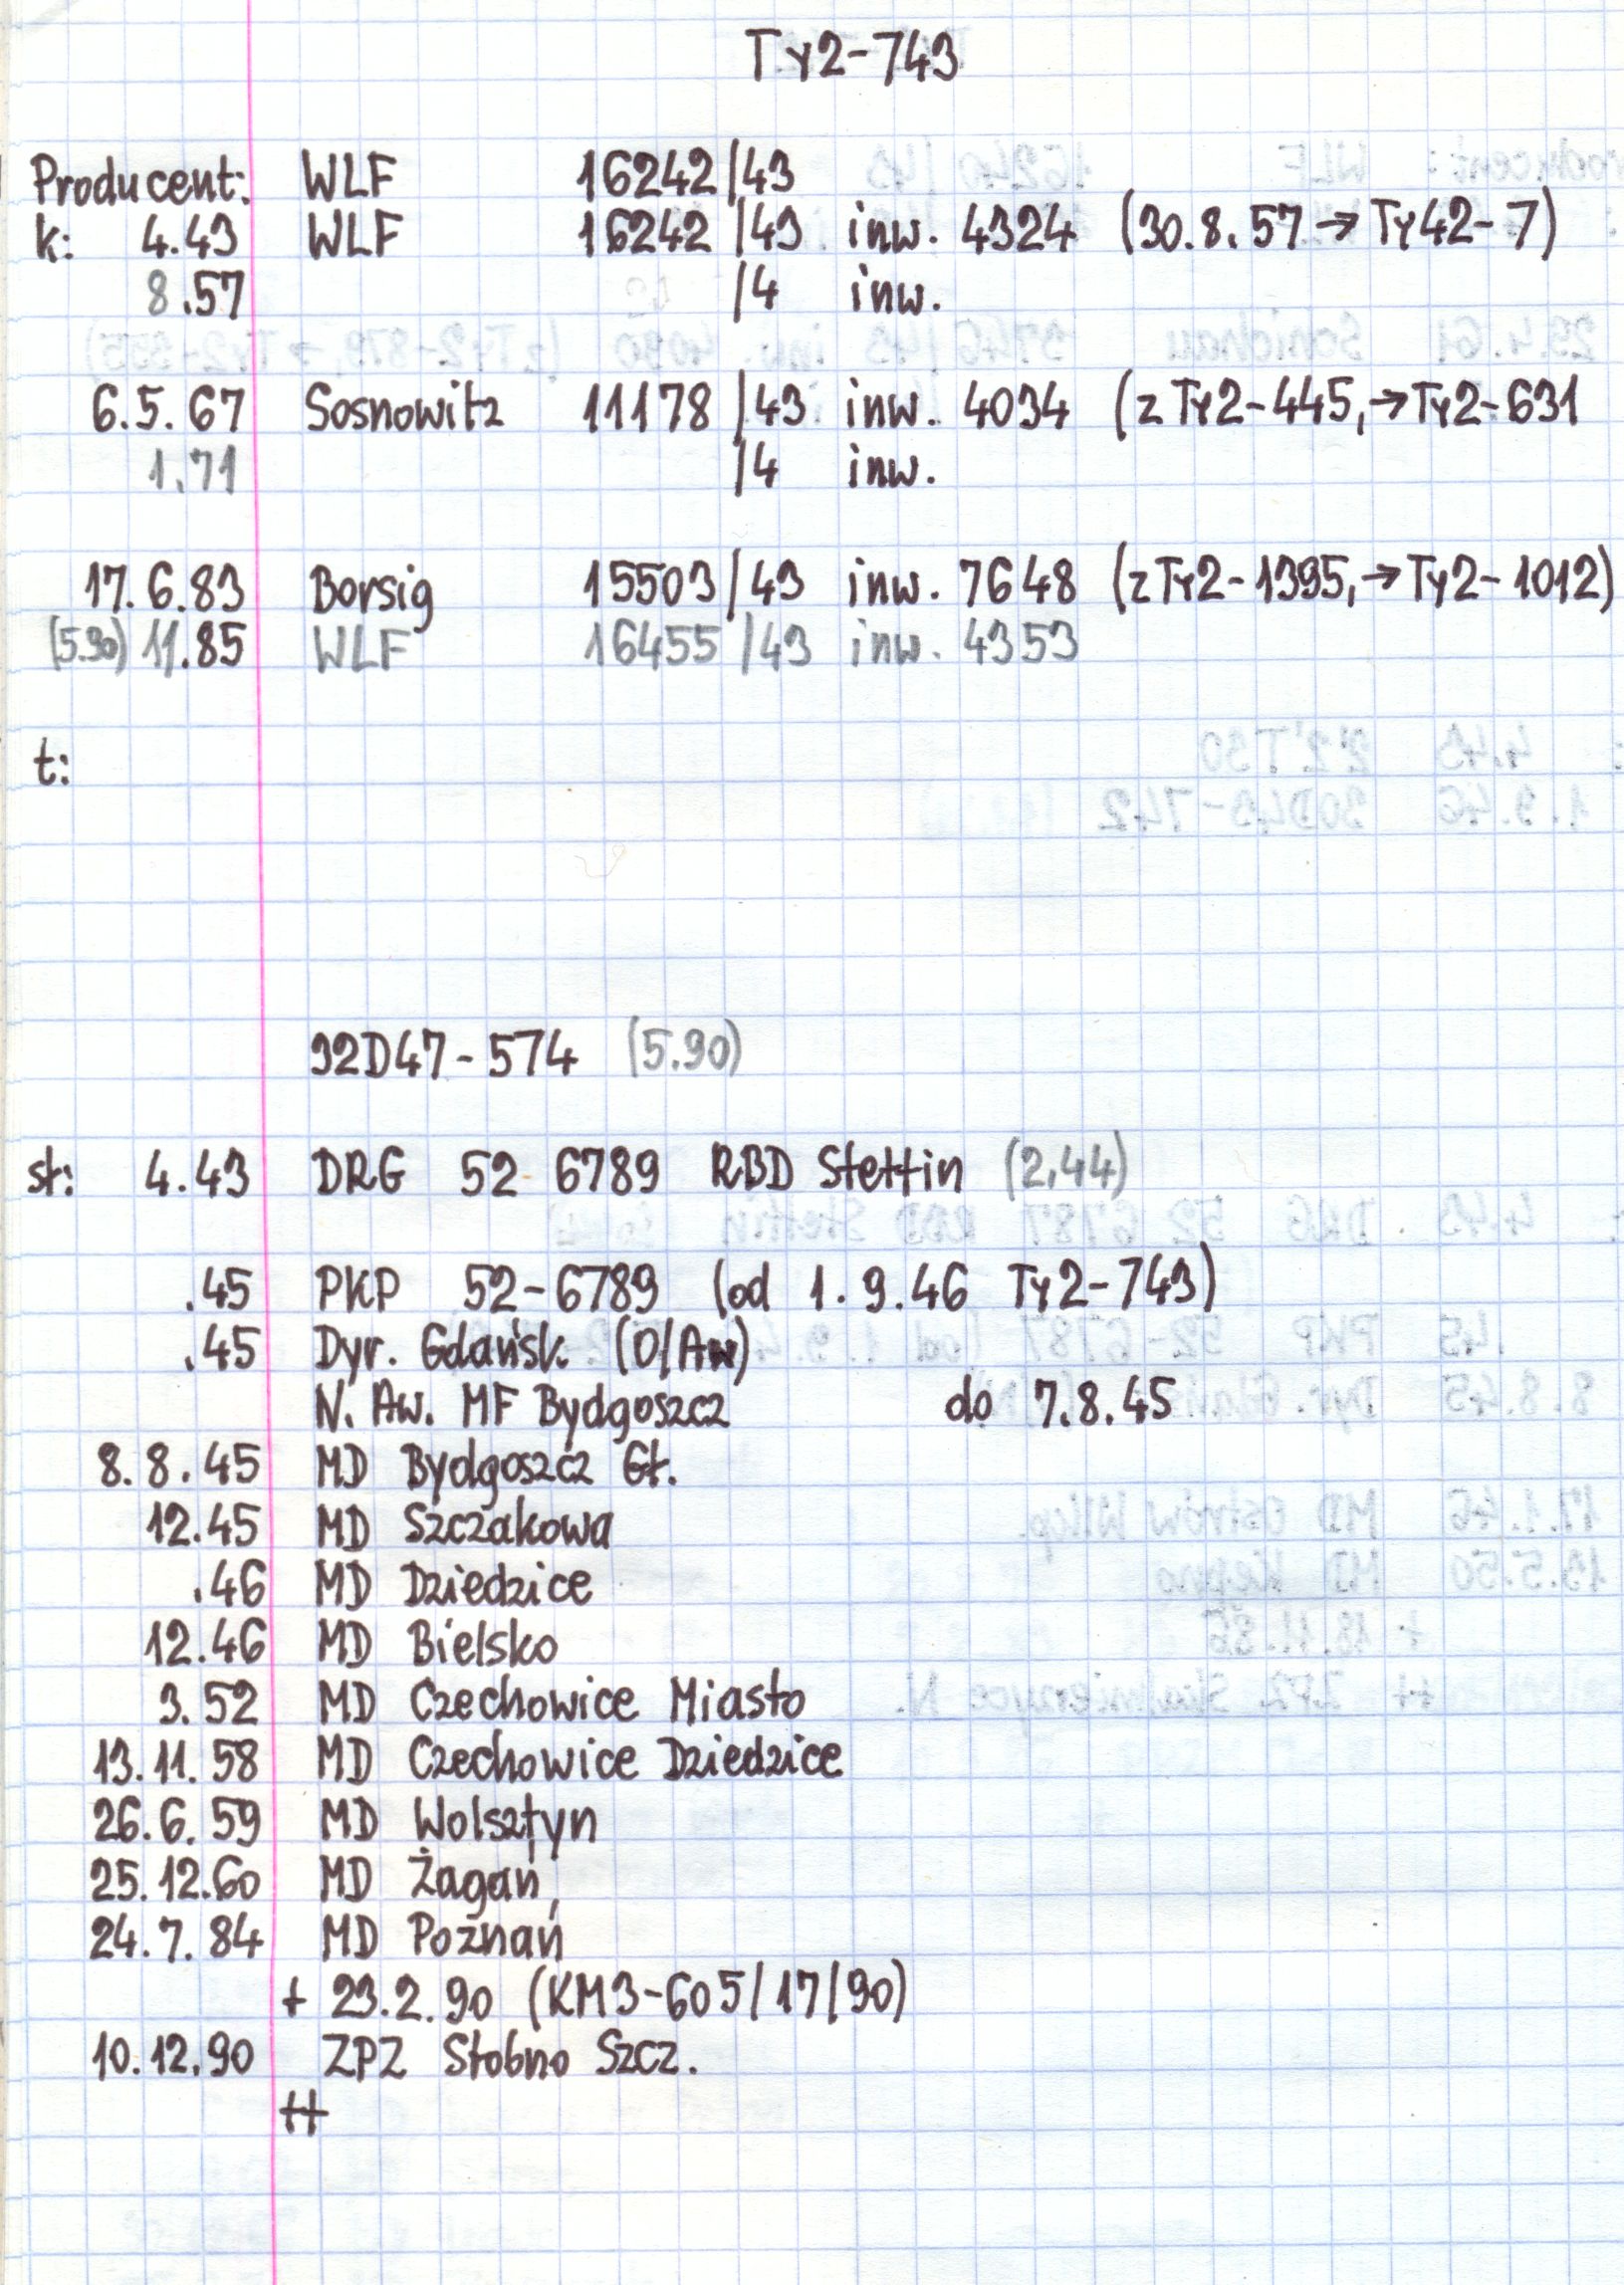 Ty2-743
Producent: WLF 16242/43
k: 4.43 WLF 16242/43 inw. 4324 (30.8.57 → Ty42-7)
8.57 /4 inw.
6.5.67 Sosnowitz 11178/43 inw. 4034 (z Ty2-445, → Ty2-631
1.71 /4 inw.
17.6.83 Borsig 15503/43 inw. 7648 (z Ty2-1395, → Ty2-1012)
(5.90) 11.85 WLF 16455/43 inw. 4353
t:
32D47-574 (5.90)
st: 4.43 DRG 52 6789 RBD Stettin (2.44)
.45 PKP 52-6789 (od 1.9.46 Ty2-743)
.45 Dyr. Gdańsk (O/Aw)
N. Aw. MF Bydgoszcz do 7.8.45
8.8.45 MD Bydgoszcz Gł.
12.45 MD Szczakowa
.46 MD Dziedzice
12.46 MD Bielsko
3.52 MD Czechowice Miasto
13.11.58 MD Czechowice Dziedzice
26.6.59 MD Wolsztyn
25.12.60 MD Żagań
24.7.84 MD Poznań
+ 23.2.90 (KM3-605/17/90)
10.12.90 ZPZ Stobno Szcz.
++